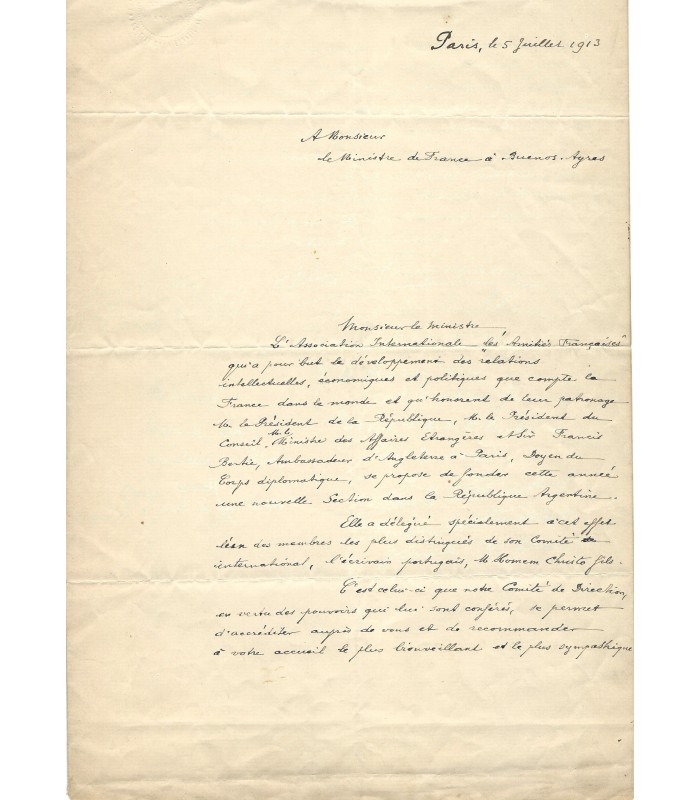 Paris, le 5 Juillet 1913
A Monsieur
le Ministre de France à Buenos-Ayres
Monsieur le Ministre
L'Association Internationale "les Amitiés Françaises"
qui a pour but le développement des relations
intellectuelles, économiques et politiques que compte la
France dans le monde et qu'honorent de leur patronage
M. le Président de la République, M. le Président du
Conseil, M. le Ministre des Affaires Etrangères et Sir Francis
Bertie, Ambassadeur d'Angleterre à Paris, Doyen du
Corps diplomatique, se propose de fonder cette année
une nouvelle Section dans la République Argentine.
Elle a délégué spécialement à cet effet
un des membres les plus distingués de son Comité
international, l'écrivain portugais, M. Homem Christo fils.
C'est celui-ci que notre Comité de Direction,
en vertu des pouvoirs qui lui sont conférés, se permet
d'accréditer auprès de vous et de recommander
à votre accueil le plus bienveillant et le plus sympathique